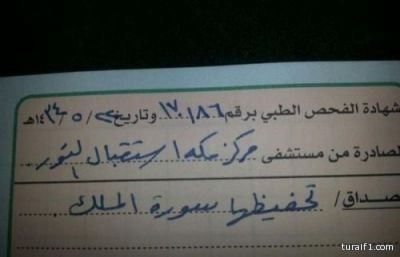 شهادة الفحص الطبي برقم ١٧٠١٨٦ وتاريخ ٢ / ٥ / ١٤٣٤هـ
الصادرة من مستشفى مركز سكاكا استقبال
صداق / تحفيظها سورة الملك
turaif1.com